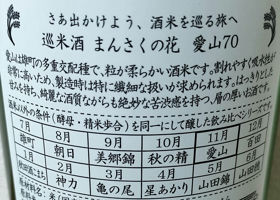 さあ出かけよう、酒米を巡る旅へ
巡米酒 まんさくの花 愛山70
愛山は雄町の多重交配種で、粒が柔らかい酒米です。割れやすく吸水性が
非常に高いため、製造時は特に繊細な扱いが求められます。はっきりとした甘
持ち、綺麗な酒質ながらも絶妙な苦渋感を持つ、層の厚いお酒です。
酒米以外の条件(酵母・精米歩合)を同一にして醸した飲み比べシリーズです
7月 8月 9月 10月 11月 12月
雄町 朝日 美郷錦 秋の精 愛山 百田
1月 2月 3月 4月 5月
神力 亀の尾 星あかり 山田錦